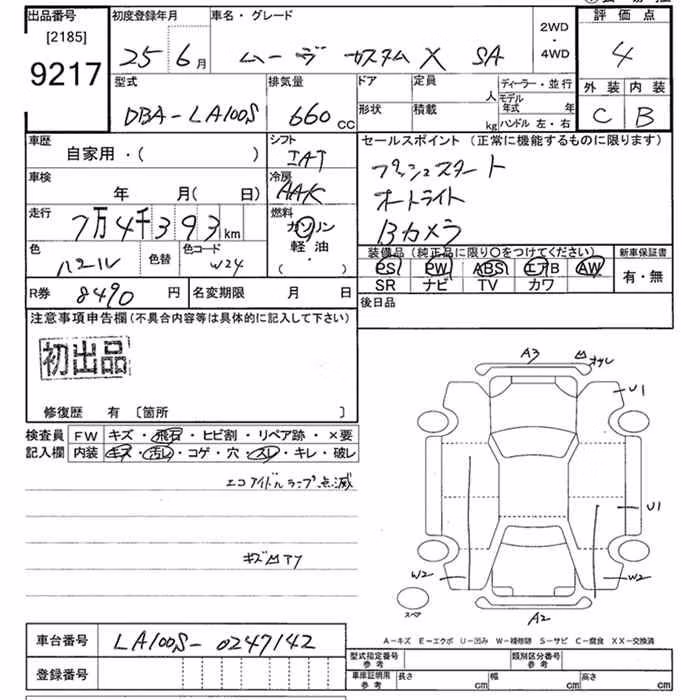 出品番号 初度登録年月 車名・グレード 2WD・4WD 評価点
[2185]
9217
25年6月 ムーヴ カスタム X SA 4
型式 排気量 ドア 定員 人 ディーラー・並行 外装 内装
DBA-LA100S 660cc 形状 積載 kg モデル年式 年 C B
ハンドル 左・右
車歴 自家用・( ) シフト IAT セールスポイント (正常に機能するものに限ります)
車検 年 月(日) 冷房 AAC プッシュスタート
走行 7万4千393km 燃料 ガソリン 軽・油 ( ) オートライト
Bカメラ
色 パール 色替 色コード W24 装備品 (純正品に限り○をつけてください) 新車保証書
PS PW ABS エアB AW 有・無
SR ナビ TV カワ
R券 8490円 名変期限 月 日 後日品
注意事項申告欄(不具合内容等は具体的に記入して下さい)
初出品
修復歴 有 〔箇所 〕
検査員 FW キズ・飛石・ヒビ割・リペア跡・×要
記入欄 内装 キズ・汚レ・コゲ・穴・スレ・キレ・破レ
エコアイドルランプ点滅
A3
U1
U1
W2
W2
A2
スペア
A-キズ E-エクボ U-凹み W-補修跡 S-サビ C-腐食 XX-交換済
車台番号 LA100S-0247142
登録番号
型式指定番号 参考 類別区分番号 参考
車庫証明用 参考 長さ cm 幅 cm 高さ cm